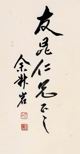 友昆仁兄正之
余叔岩